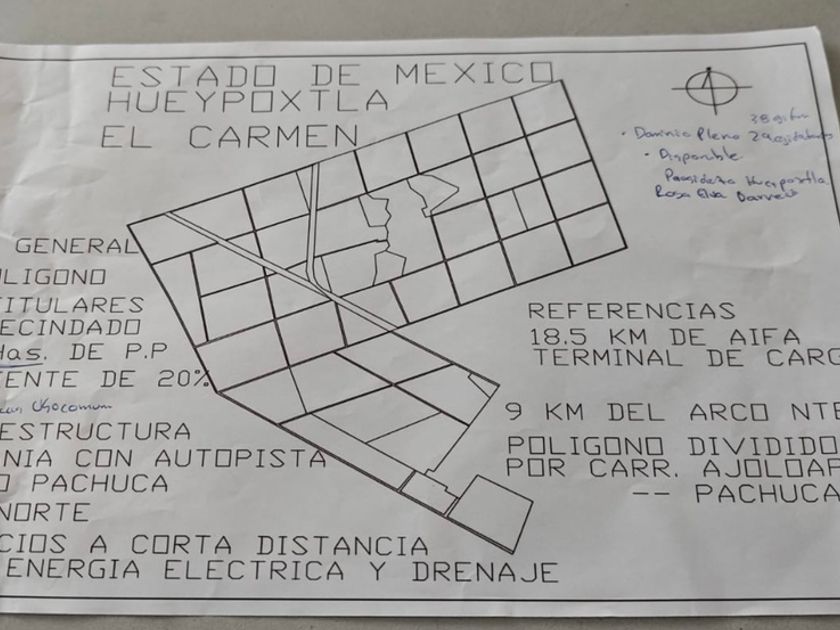 ESTADO DE MEXICO
HUEYPOXTLA
EL CARMEN
Dominio Pleno
Disponible
Rosa Elva
GENERAL
LIGONO
TITULARES
ECINDADO
Has. DE P.P
IENTE DE 20%
ESTRUCTURA
NIA CON AUTOPISTA
O PACHUCA
NORTE
CIOS A CORTA DISTANCIA
ENERGIA ELECTRICA Y DRENAJE
REFERENCIAS
18.5 KM DE AIFA
TERMINAL DE CARG
9 KM DEL ARCO NTE
POLIGONO DIVIDIDO
POR CARR. AJOLOAP
-- PACHUCA